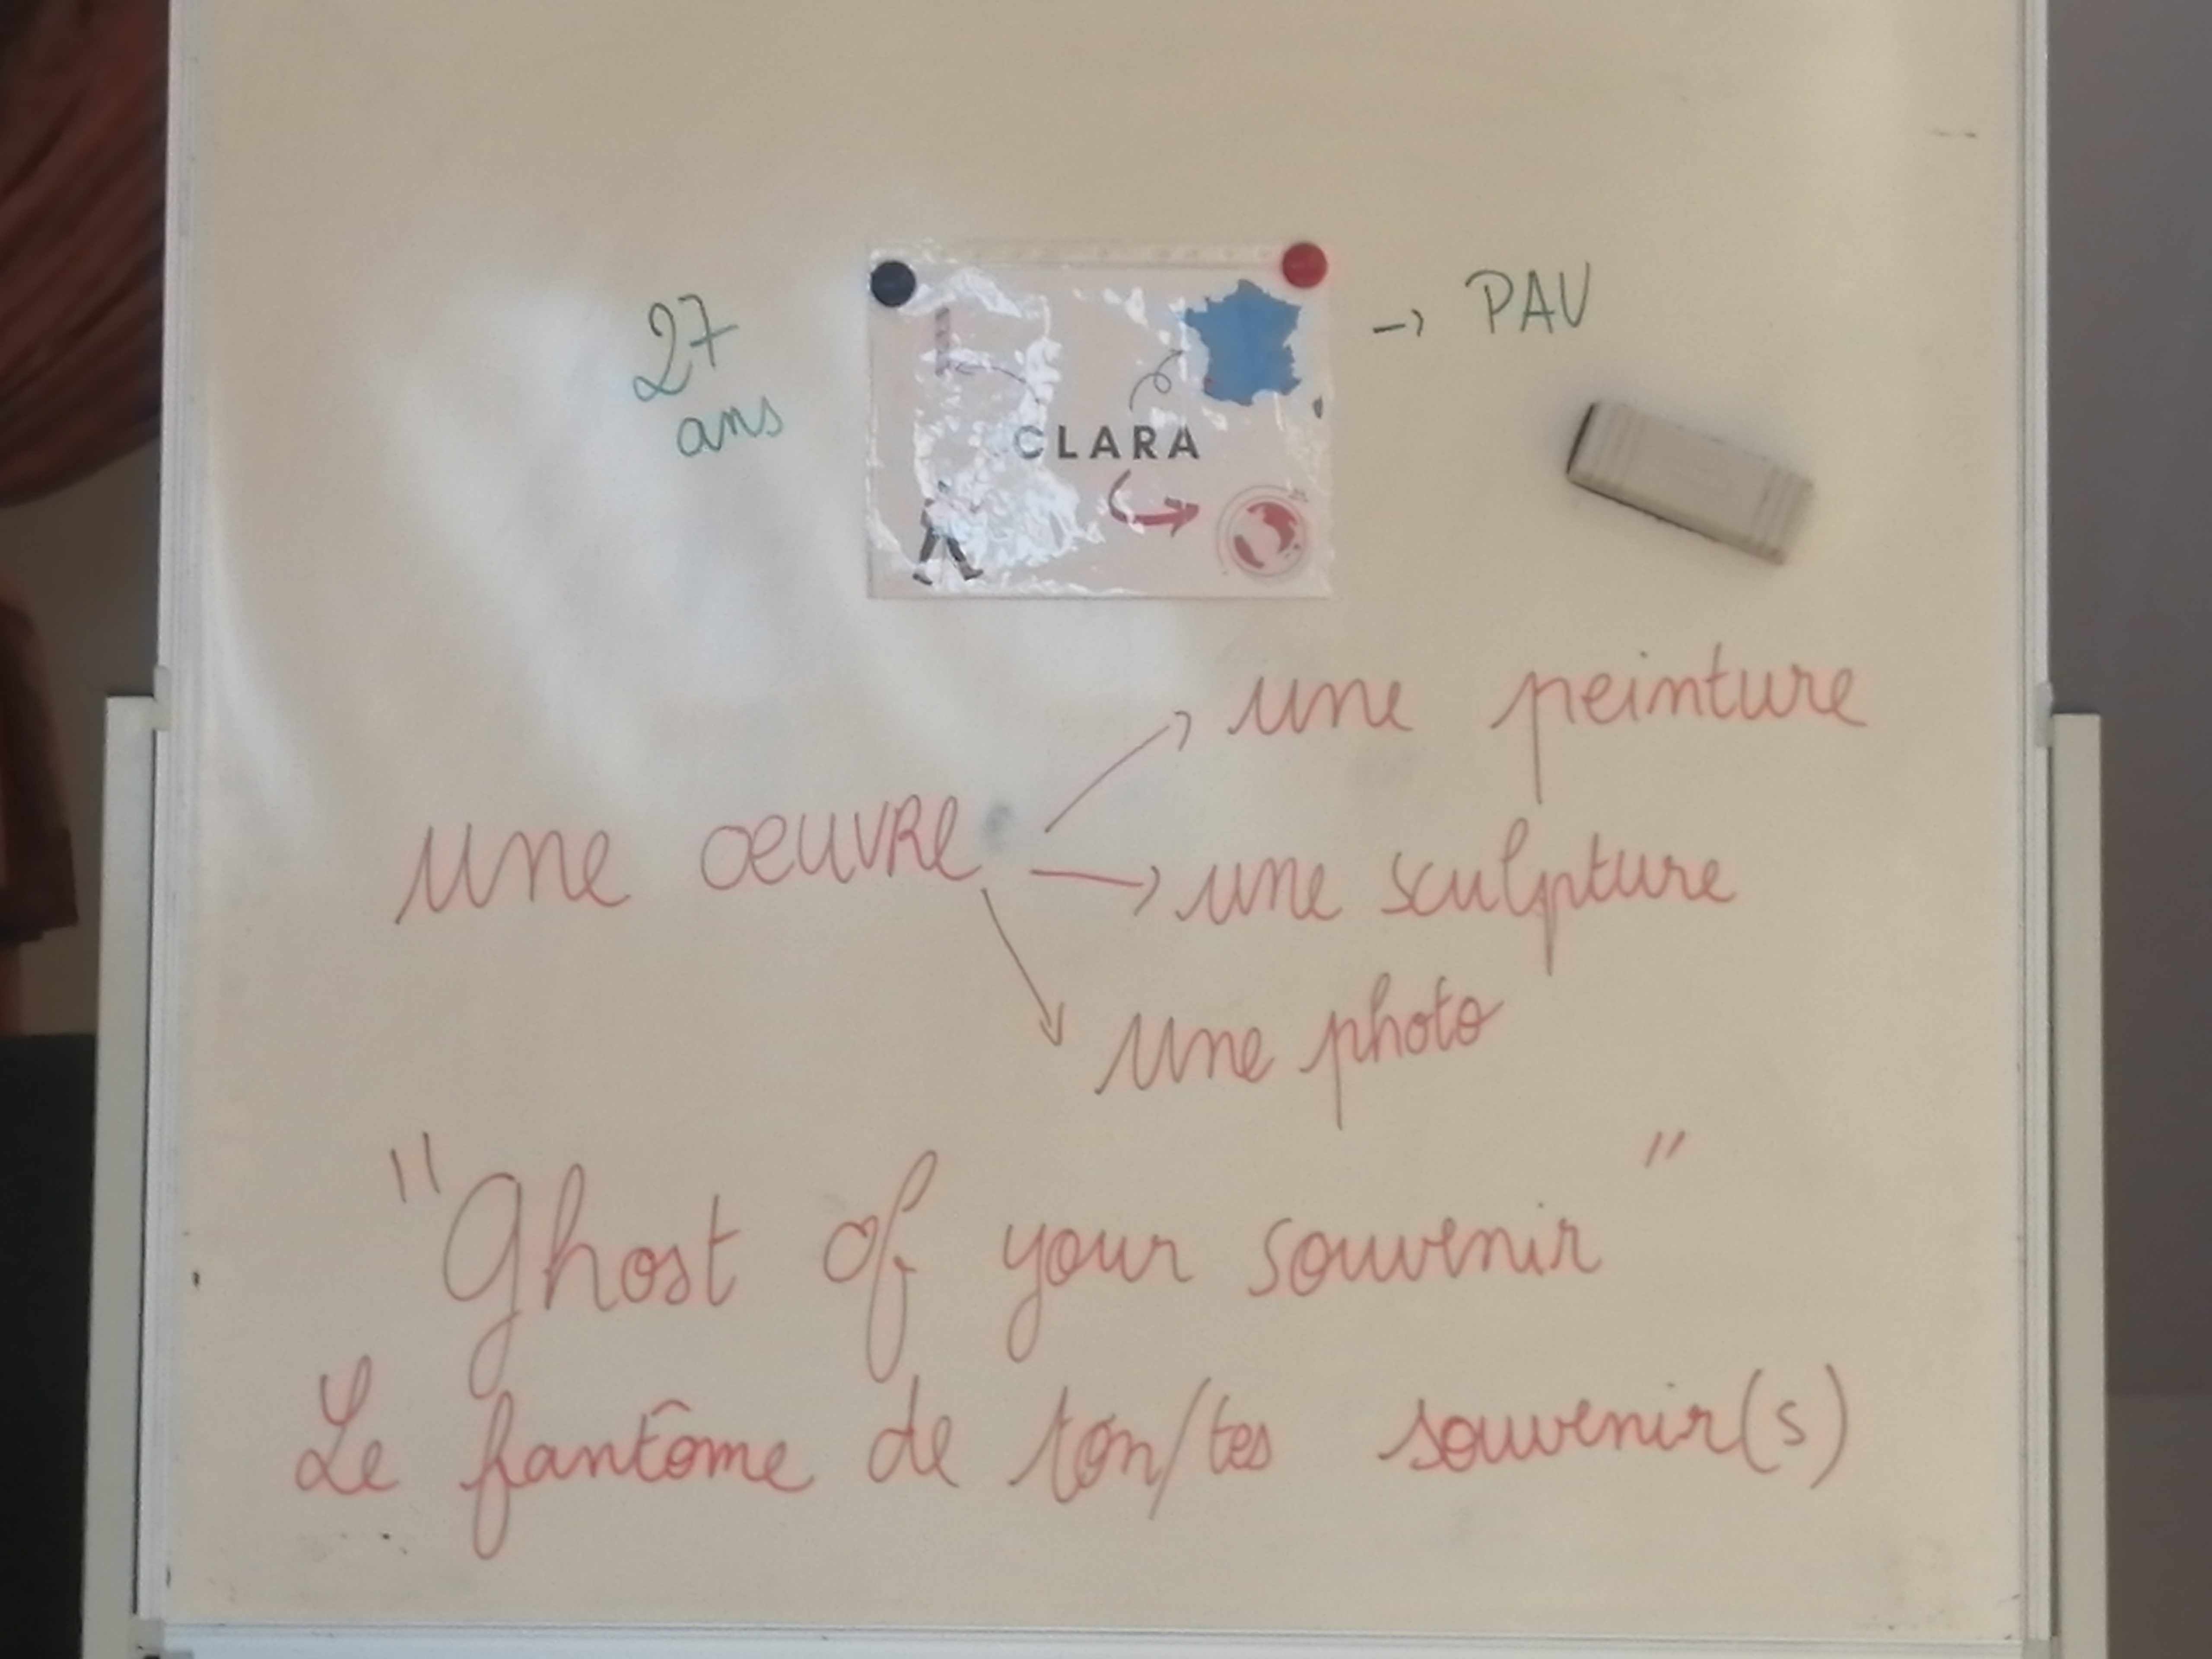 27
ans
CLARA
→ PAU
une peinture
une œuvre
une sculpture
une photo
"Ghost of your souvenir"
Le fantôme de ton/tes souvenir(s)